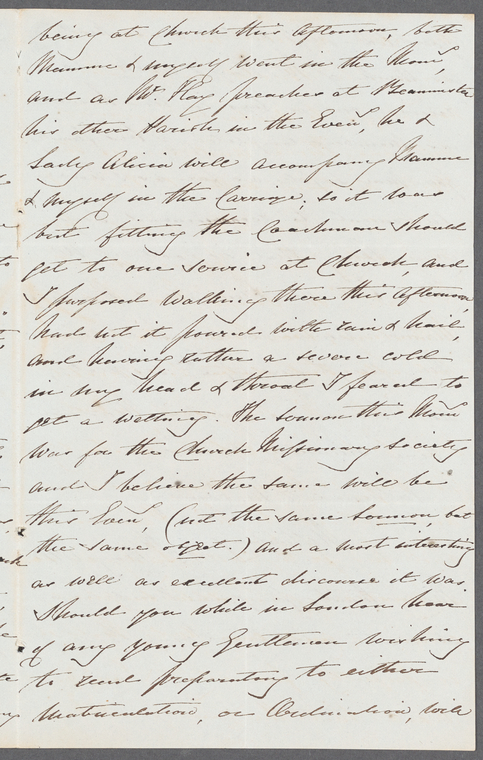 being at Church this Afternoon, both
Mamma & myself went in the Morn,
and as Mr. preaches at
his other Parish in the Even, he &
Lady Alicia will accompany Mamma
& myself in the Carriage, so it was
but fitting the Coachman should
get to one service at Church, and
I purposed walking there this Afternoon,
had not it poured with rain & hail,
and having rather a severe cold
in my head & throat I feared to
get a wetting. The sermon this Morn
was for the Church Missionary Society
and I believe the same will be
this Even, (not the same sermon, but
the same object.) and a most interesting
as well as excellent discourse it was.
Should you while in London hear
of any young Gentleman wishing
to read preparatory to either
Matriculation, or Ordination, will